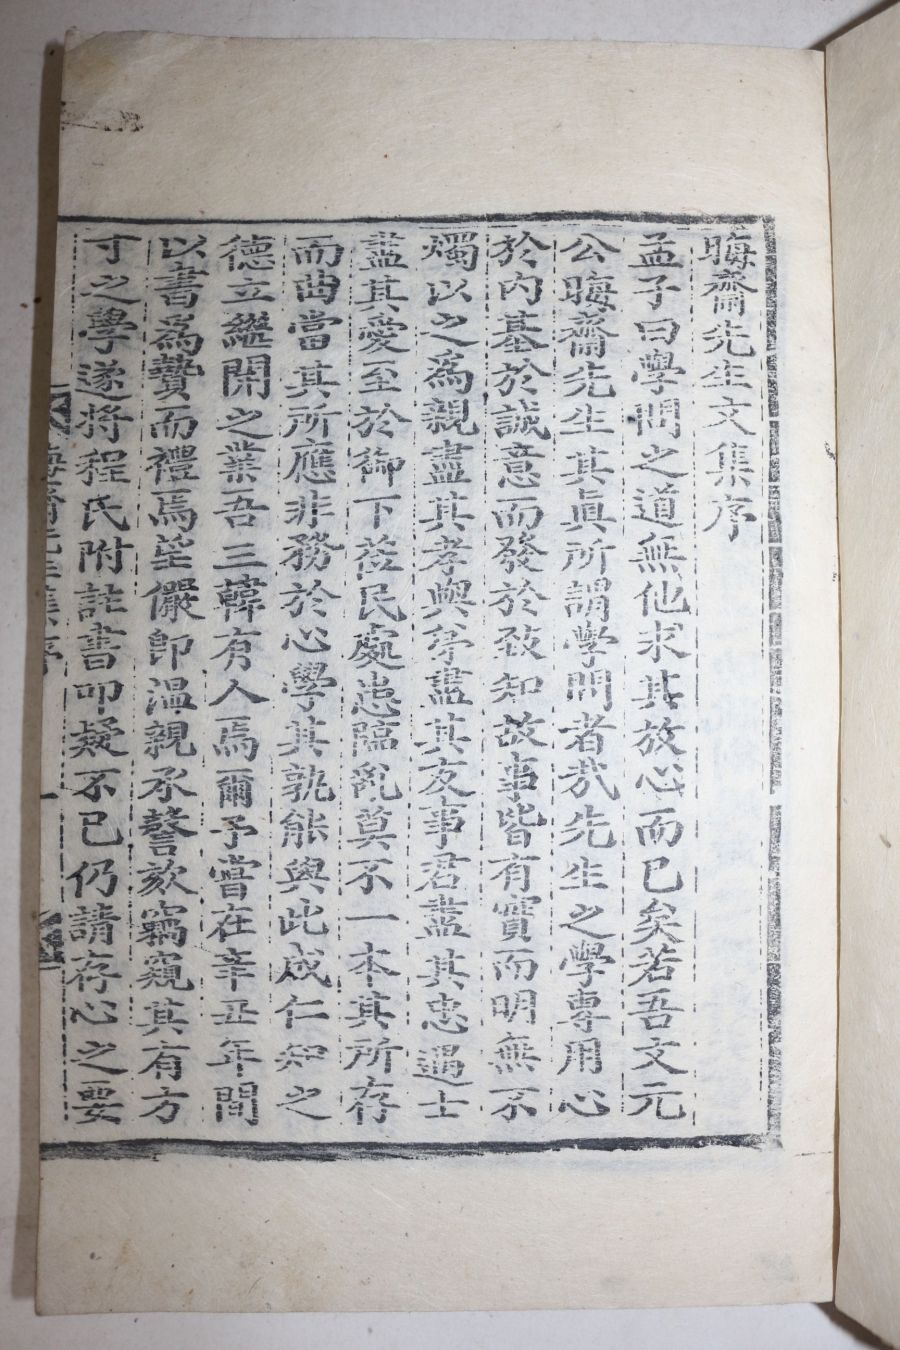 晦齋先生文集序
孟子曰學問之道無他求其放心而已矣若吾文元
公晦齋先生其眞所謂學問者㢤先生之學專用心
於内基於誠意而發於致知故事皆有實而明無不
燭以之爲親盡其孝與弟盡其友事君盡其忠遇士
盡其愛至於御下莅民處患臨亂莫不一本其所存
而曲當其所應非務於心學其孰能與此成仁知之
德立繼開之業吾三韓有人焉爾予嘗在辛丑年間
以書爲贄而禮焉望儼卽溫親承謦欬竊窺其有方
寸之學遂將程氏附註書叩疑不已仍請存心之要
晦齋先生集序
一